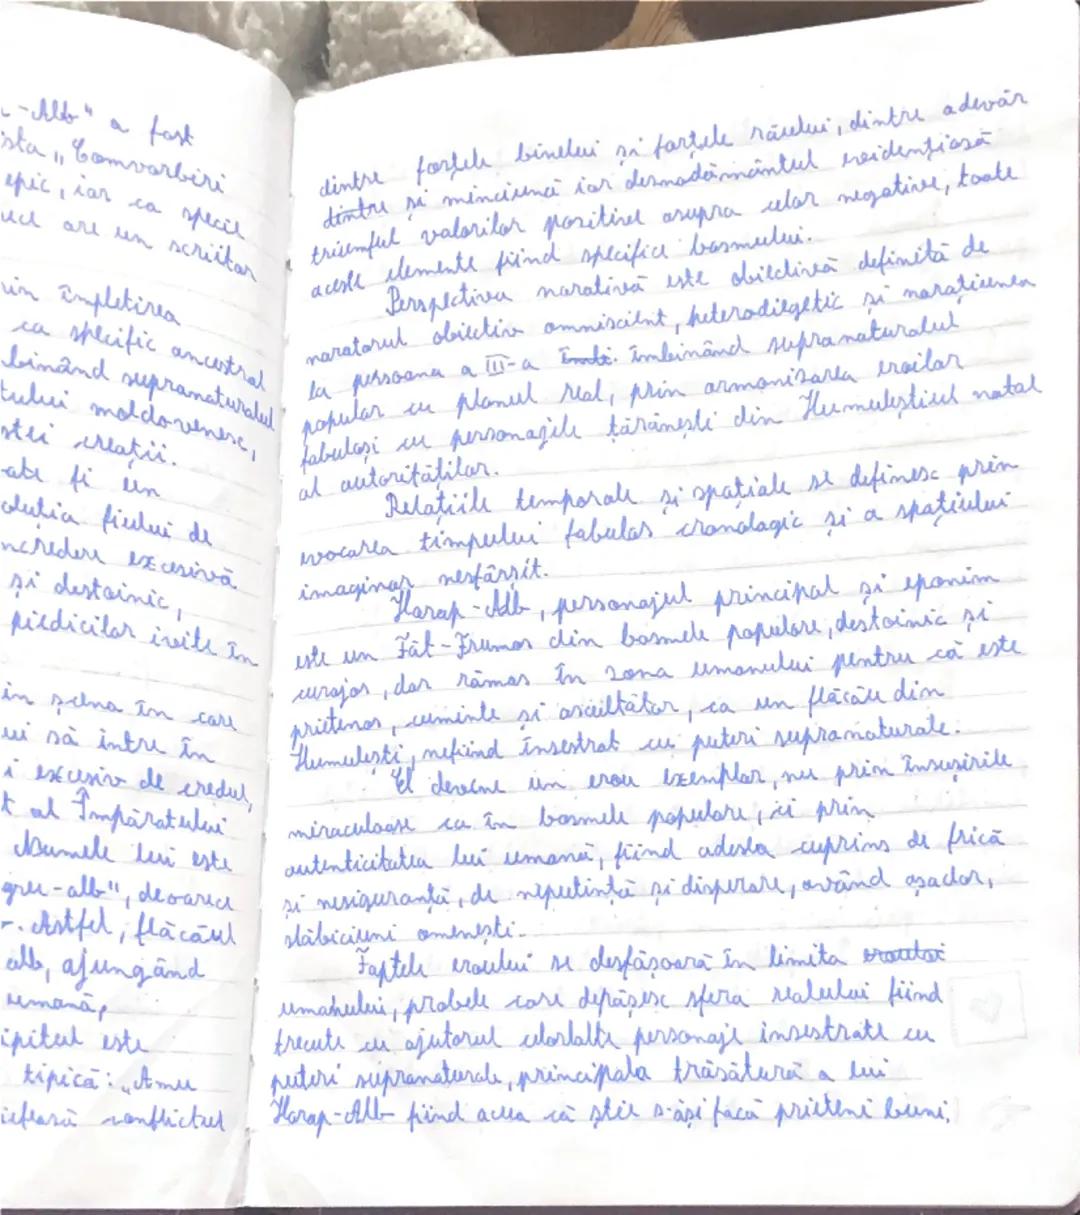 -Alb" a fost
ista „Convorbiri
epic, iar ca specie
are un scriitor
împletirea
ca specific ancestral
binând supranaturalul
tului moldovenesc,
stei creații.
ate fi un
oluția fiului de
ncredere excesivă
și destoinic,
piedicilor ivite în
in scena în care
ui să intre în
i excesiv de credul,
t al Împăratului
Numele lui este
gru-alb", deoarece
r. Astfel, flăcăul
alb, ajungând
umană,
ipitul este
tipică: „Amu
conflictul
dintre forțele binelui și forțele răului, dintre adevăr
dintre și minciună iar deznodământul evidențiază
triumful valorilor pozitive asupra celor negative, toate
aceste elemente fiind specifice basmului.
Perspectiva narativă este obiectivă definită de
naratorul obiectiv omniscient, heterodiegetic și narațiunea
la persoana a III-a îmbi. îmbinând supranaturalul
popular cu planul real, prin armonizarea eroilor
fabuloși cu personajele țărănești din Humuleștiul natal
al autorităților.
Relațiile temporale și spațiale se definesc prin
evocarea timpului fabulos cronologic și a spațiului
imaginar nesfârșit.
Harap-Alb, personajul principal și eponim
este un Făt-Frumos din basmele populare, destoinic și
curajos, dar rămas în zona umanului pentru că este
prietenos, cuminte și ascultător, ca un flăcău din
Humulești, nefiind însestrat cu puteri supranaturale.
El devene un erou exemplar, nu prin însușirile
miraculoase ca în basmele populare, ci prin
autenticitatea lui umană, fiind adesea cuprins de frică
și nesiguranță, de neputință și disperare, având așadar,
slăbiciuni omenești.
Faptele eroului se desfășoară în limita
umanului, probele care depășesc sfera realului fiind
trecute cu ajutorul celorlalte personaje insestrate cu
puteri supranaturale, principala trăsătură a lui
Harap-Alb fiind aceea că știe s-ăși facă prieteni buni,